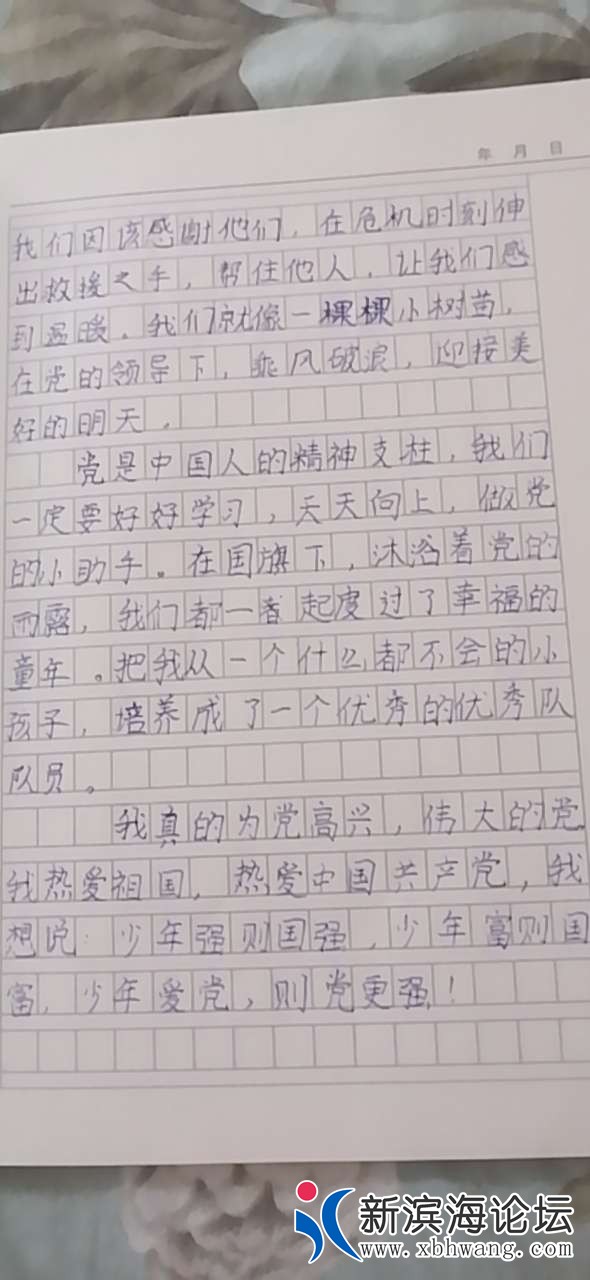 年 月 日
我们因该感谢他们，在危机时刻伸
出救援之手，帮住他人，让我们感
到温暖．我们就像一棵棵小树苗，
在党的领导下，乘风破浪，迎接美
好的明天．
党是中国人的精神支柱，我们
一定要好好学习，天天向上，做党
的小助手。在国旗下，沐浴着党的
雨露，我们都一着起度过了幸福的
童年。把我从一个什么都不会的小
孩子，培养成了一个优秀的优秀队
队员。
我真的为党高兴，伟大的党
我热爱祖国，热爱中国共产党，我
想说：少年强则国强，少年富则国
富，少年爱党，则党更强！
新滨海论坛
www.xbhwang.com